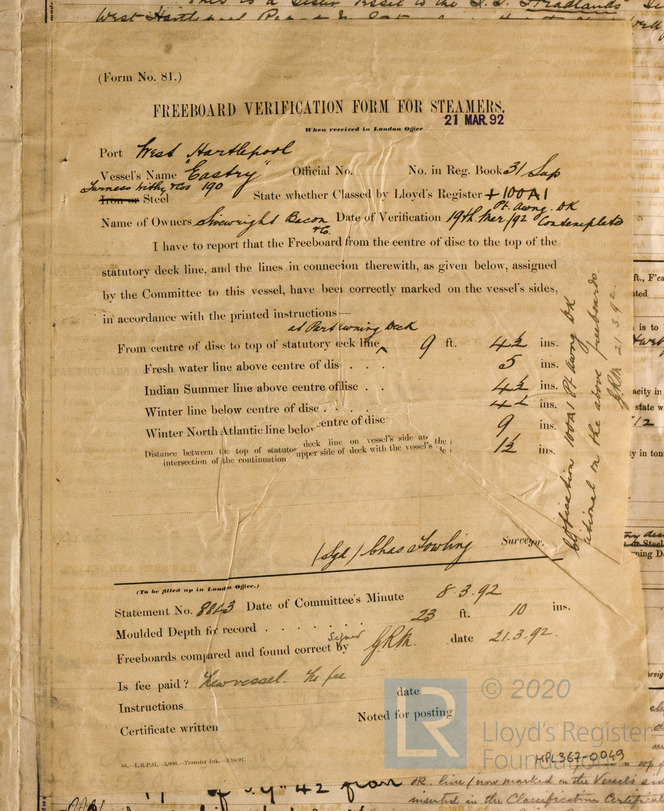 This is a Sister Vessel to the S.S.
West Hartlepool
(Form No. 81.)
FREEBOARD VERIFICATION FORM FOR STEAMERS.
21 MAR. 92
When received in London Office
Port West Hartlepool
Vessel's Name "Eastry" Official No. No. in Reg. Book 31 Sup
Furness Withy & Co 190
Iron or Steel State whether Classed by Lloyd's Register +100A1
Pt. Awng. DK
Name of Owners Sivewright Bacon & Co. Date of Verification 19th Mar/92 Contemplated
I have to report that the Freeboard from the centre of disc to the top of the
statutory deck line, and the lines in connection therewith, as given below, assigned
by the Committee to this vessel, have been correctly marked on the vessel's sides,
in accordance with the printed instructions—
at Part Awning Deck
From centre of disc to top of statutory eck line 9 ft. 4½ ins.
Fresh water line above centre of dis . . . 5 ins.
Indian Summer line above centre of disc . . . 4½ ins.
Winter line below centre of disc . . . . 4½ ins.
Winter North Atlantic line below centre of disc 9 ins.
Distance between the top of statutor deck line on vessel's side an the
intersection of the continuation upper side of deck with the vessel's 1½ ins.
Classification 100A1 Pt Awng DK
itional on the above freeboards
GRM 21.3.92.
(Sgd) Chas Towling Surveyor.
(To be filled up in London Office.)
Statement No. 8863 Date of Committee's Minute 8.3.92
Moulded Depth for record . . . . . . . 23 ft. 10 ins.
Freeboards compared and found correct by Signed GRM. date 21.3.92.
Is fee paid? New vessel. No fee date
Instructions Noted for posting
Certificate written
© 2020
Lloyd's Register
Foundation
HPL367-0049
LR
line (now marked on the Vessel's
inserted in the Classification Certific